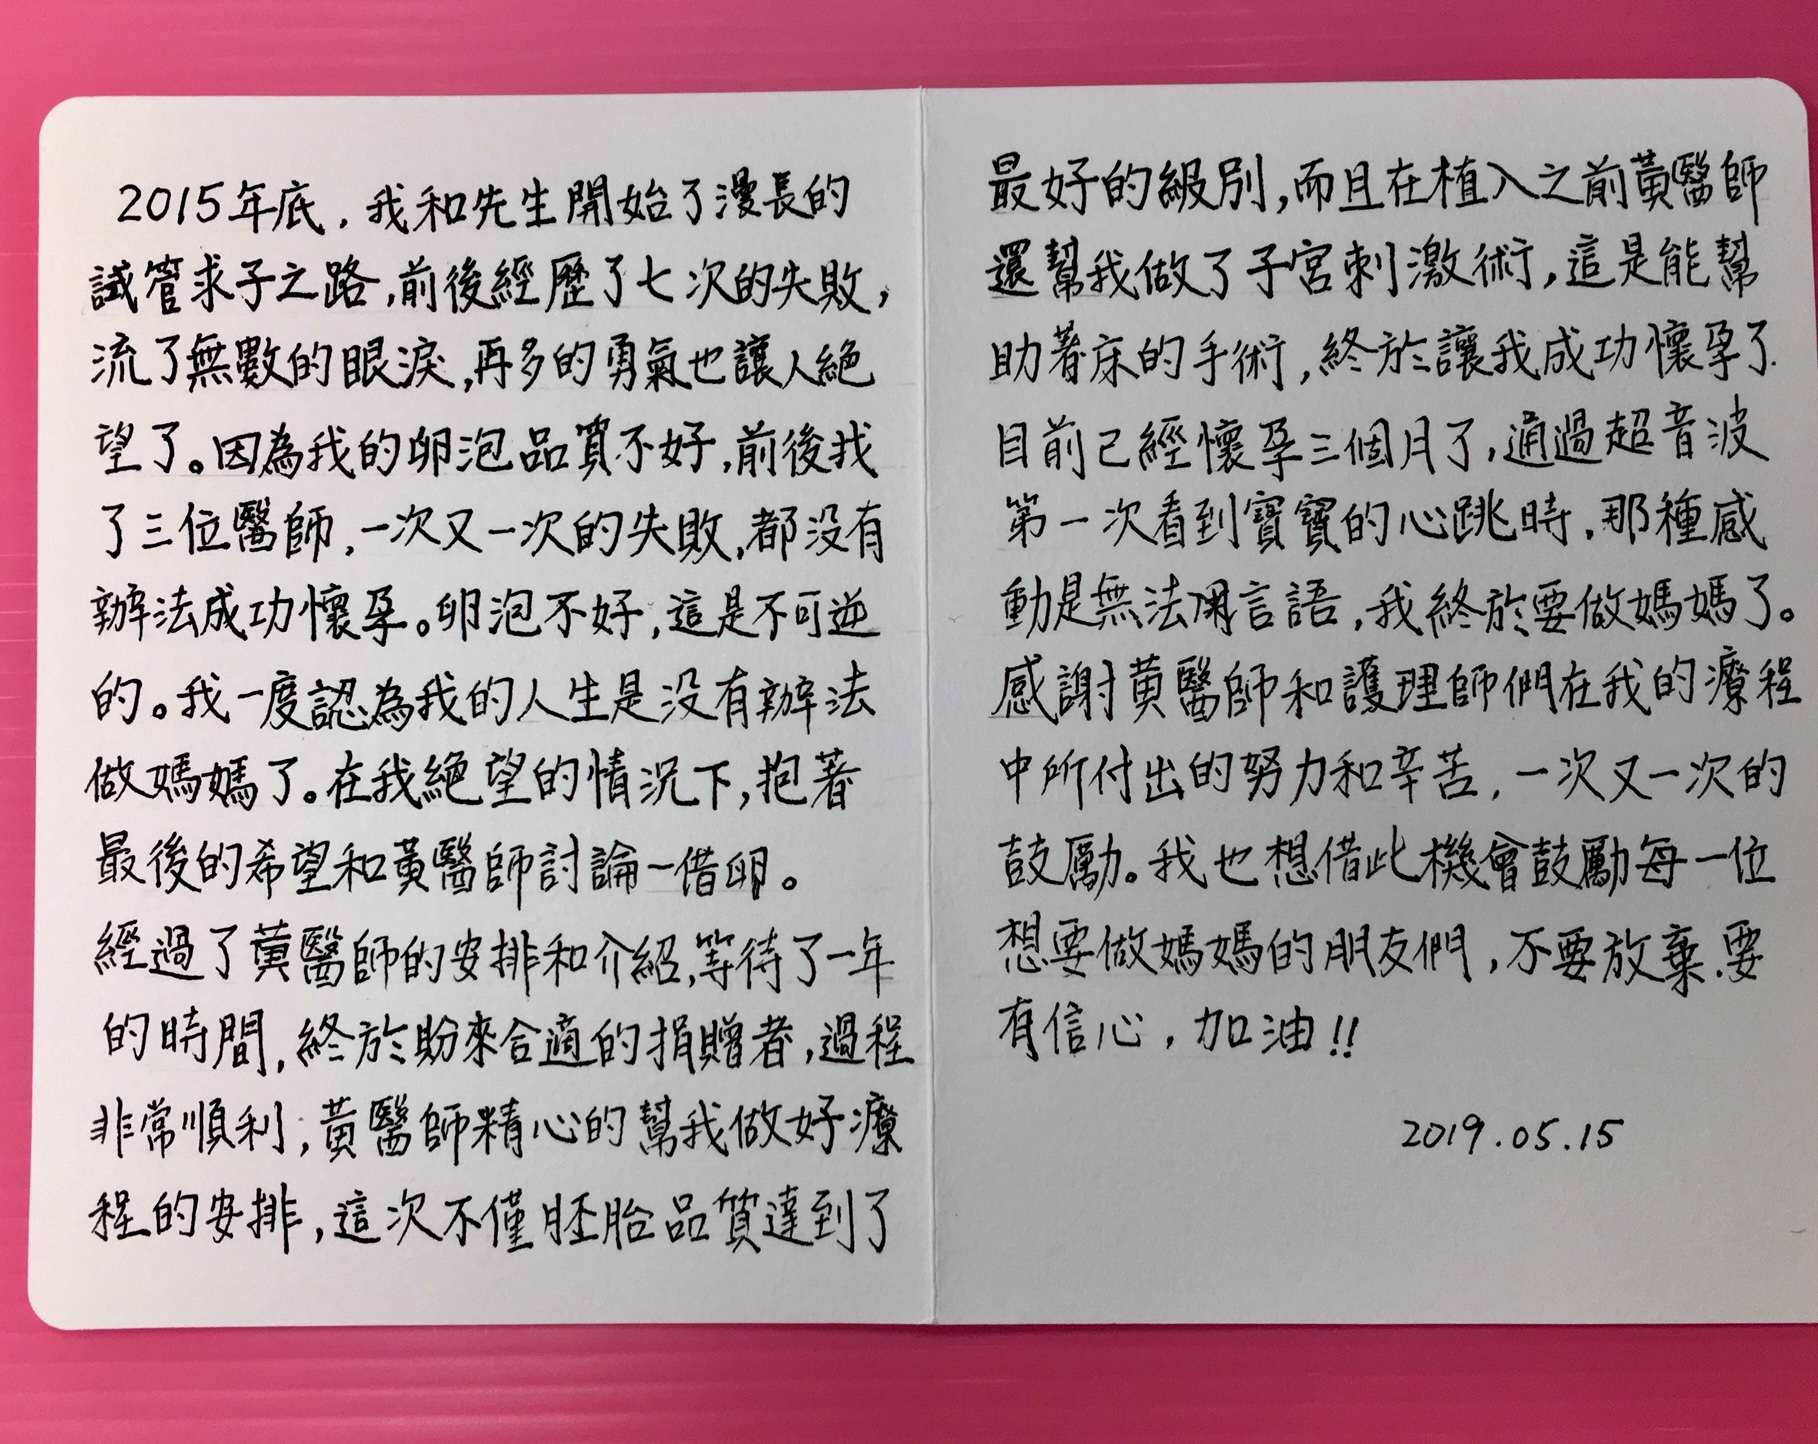 2015年底，我和先生開始了漫長的
試管求子之路，前後經歷了七次的失敗，
流了無數的眼淚，再多的勇氣也讓人絕
望了。因為我的卵泡品質不好，前後找
了三位醫師，一次又一次的失敗，都沒有
辦法成功懷孕。卵泡不好，這是不可逆
的。我一度認為我的人生是沒有辦法
做媽媽了。在我絕望的情況下，抱著
最後的希望和黃醫師討論一借卵。
經過了黃醫師的安排和介紹，等待了一年
的時間，終於盼來合適的捐贈者，過程
非常順利，黃醫師精心的幫我做好療
程的安排，這次不僅胚胎品質達到了
最好的級別，而且在植入之前黃醫師
還幫我做了子宮刺激術，這是能幫
助著床的手術，終於讓我成功懷孕了.
目前已經懷孕三個月了，通過超音波
第一次看到寶寶的心跳時，那種感
動是無法用言語，我終於要做媽媽了。
感謝黃醫師和護理師們在我的療程
中所付出的努力和辛苦，一次又一次的
鼓勵。我也想借此機會鼓勵每一位
想要做媽媽的朋友們，不要放棄，要
有信心，加油!!
2019.05.15